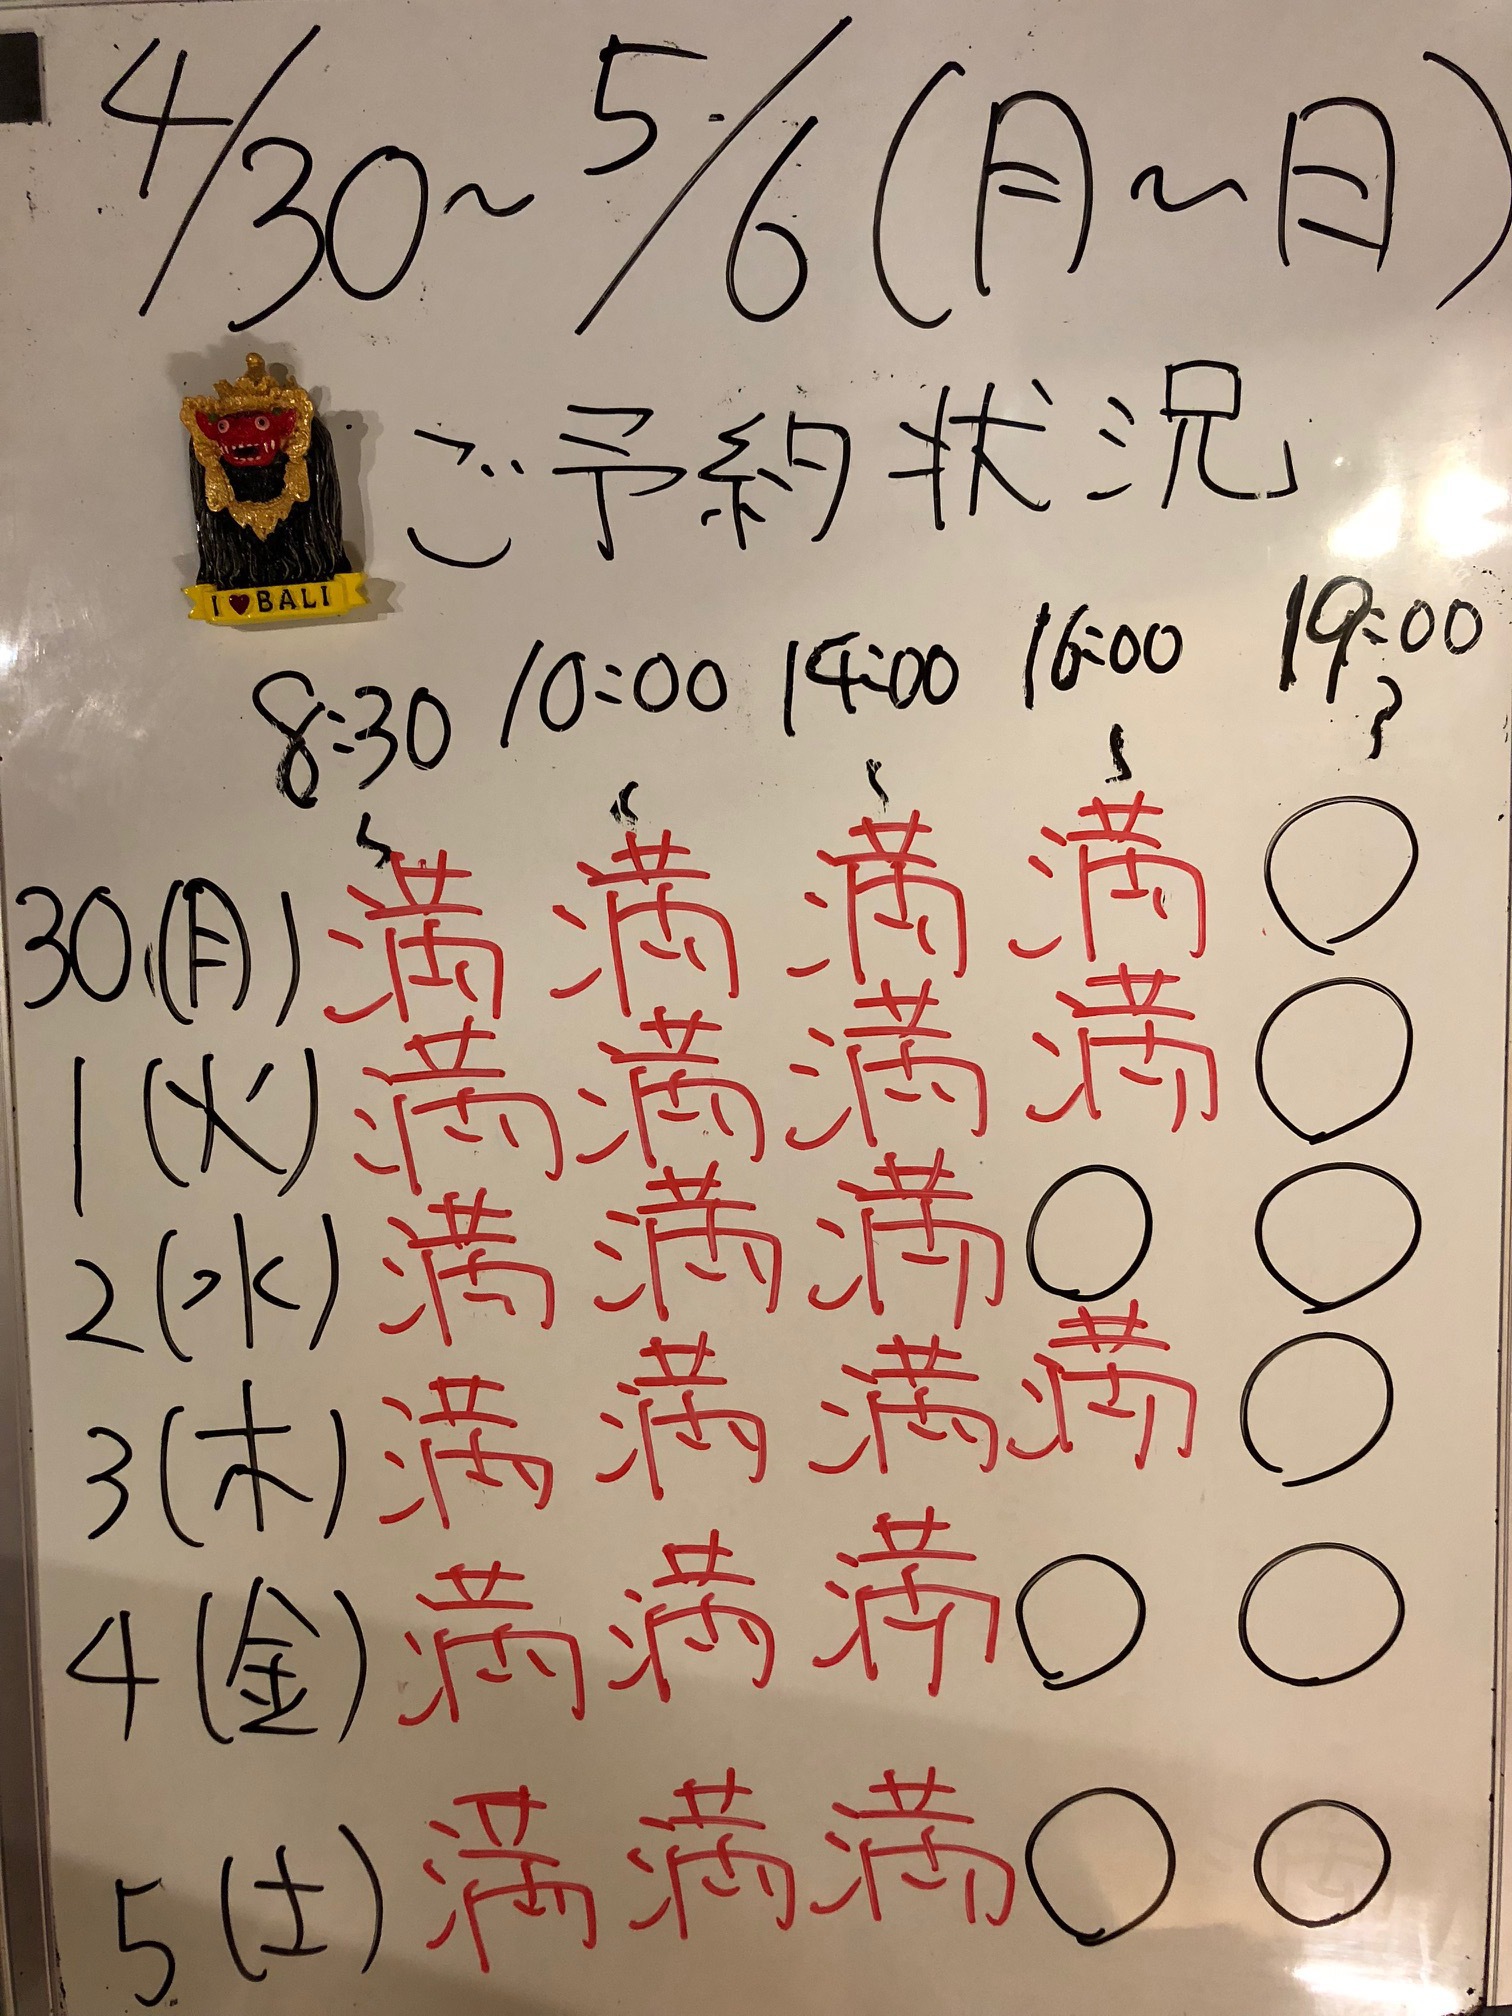 4/30~5/6(月~日)
ご予約状況
I ♥ BALI
8:30~ 10:00~ 14:00~ 16:00~ 19:00~
30(月) 満 満 満 満 ○
1(火) 満 満 満 満 ○
2(水) 満 満 満 ○ ○
3(木) 満 満 満 満 ○
4(金) 満 満 満 ○ ○
5(土) 満 満 満 ○ ○